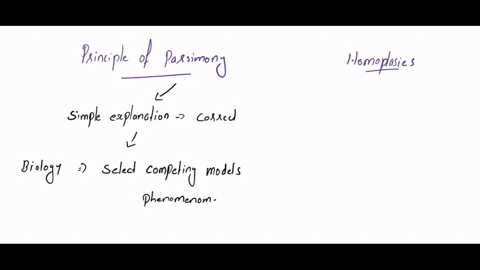 Principle of Parsimony
Homoplasies
Simple explanation ⇒ Correct
Biology ⇒ Select competing models
phenomenom.